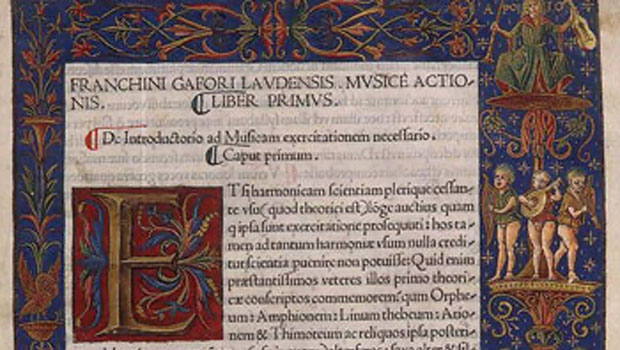 FRANCHINI GAFORI LAVDENSIS. MVSICĘ ACTIO-
NIS. ¶LIBER PRIMVS.
¶De Introductorio ad Musicam exercitationem necessario.
¶Caput primum.
E Tsi harmonicam scientiam plerique cessan
te vsu (quod theorici est) lōge auctius quam
q ipsa sunt exercitatione prosequuti: hos ta
men ad tantum harmoniæ vsum nulla credi
tur scientia puenire non potuisse: Quid enim
præstantissimos veteres illos primo theori
cæ conscriptos commemorem: quam Orphe
um: Amphionem: Linum thebeum: Ario
nem & Thimoteum ac reliquos ipsa posteri